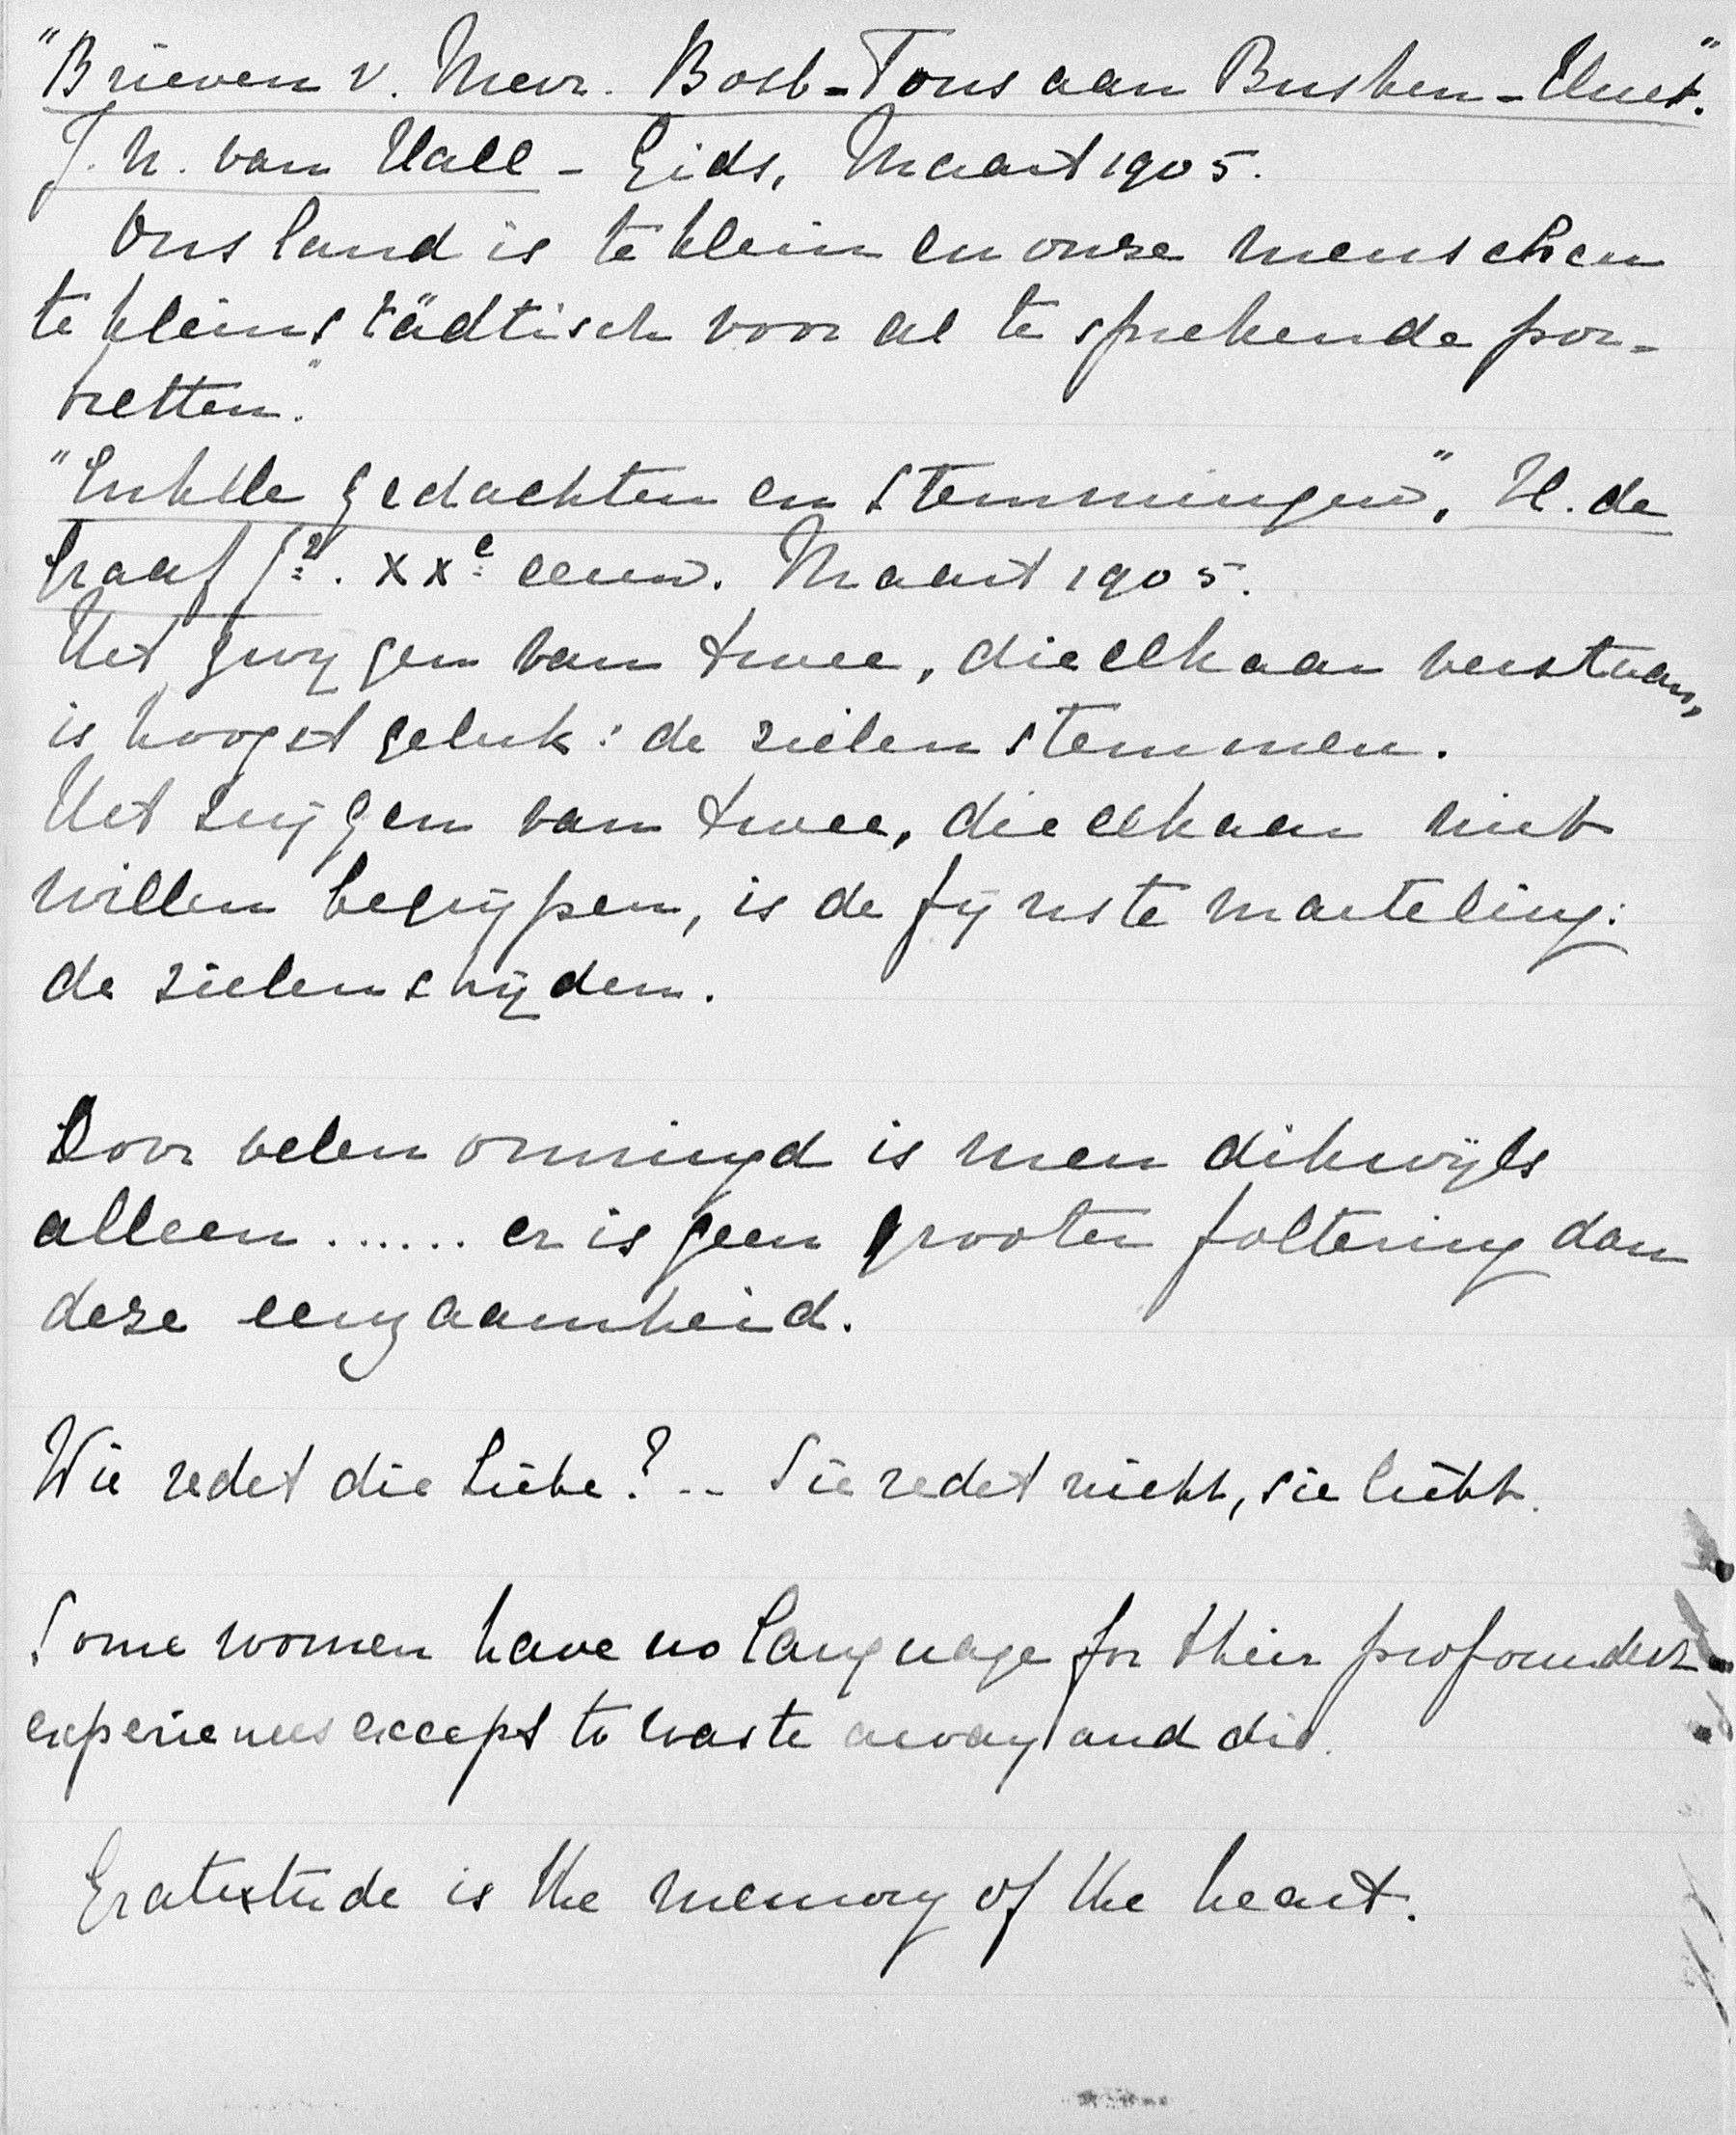 "Brieven v. Mevr. Bosb-Tous aan Busken-Huet."
J. N. van Hall - Gids, Maart 1905.
Ons land is te klein en onze menschen
te kleinstädtisch voor al te sprekende por-
tretten."
"Enkele gedachten en Stemmingen", H. de
Graaf Jr. XXe eeuw. Maart 1905.
Het zwijgen van twee, die elkaar verstaan,
is hoogst geluk: de zielen stemmen.
Het zwijgen van twee, die elkaar niet
willen begrijpen, is de fijnste marteling:
de zielen strijden.
Door velen omringd is men dikwijls
alleen ...... er is geen grooter foltering dan
deze eenzaamheid.
Wie redet die Liebe? -- Sie redet nicht, sie liebt.
Some women have no language for their profounder
experiences except to waste away and die.
Gratitude is the memory of the heart.